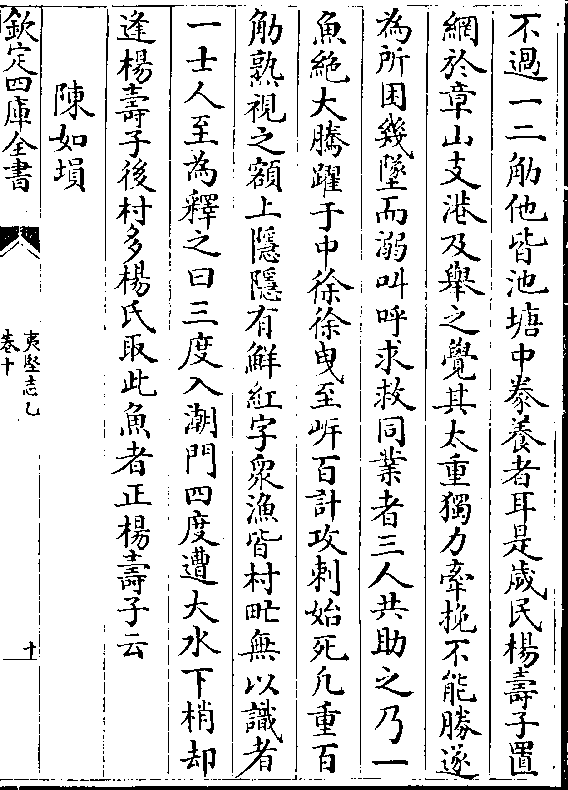 不過一二觔他皆池塘中豢養者耳是歲民楊壽子置
網於章山支港及舉之覺其太重獨力牽挽不能勝遂
為所困幾墜而溺叫呼求救同業者三人共助之乃一
魚絶大騰躍于中徐徐曳至岍百計攻刺始死凡重百
觔熟視之額上隱隱有鮮紅字衆漁皆村甿無以識者
一士人至為釋之曰三度入潮門四度遭大水下梢却
逢楊壽子後村多楊氏取此魚者正楊壽子云
陳如塤
欽定四庫全書
夷堅志乙
卷十
十